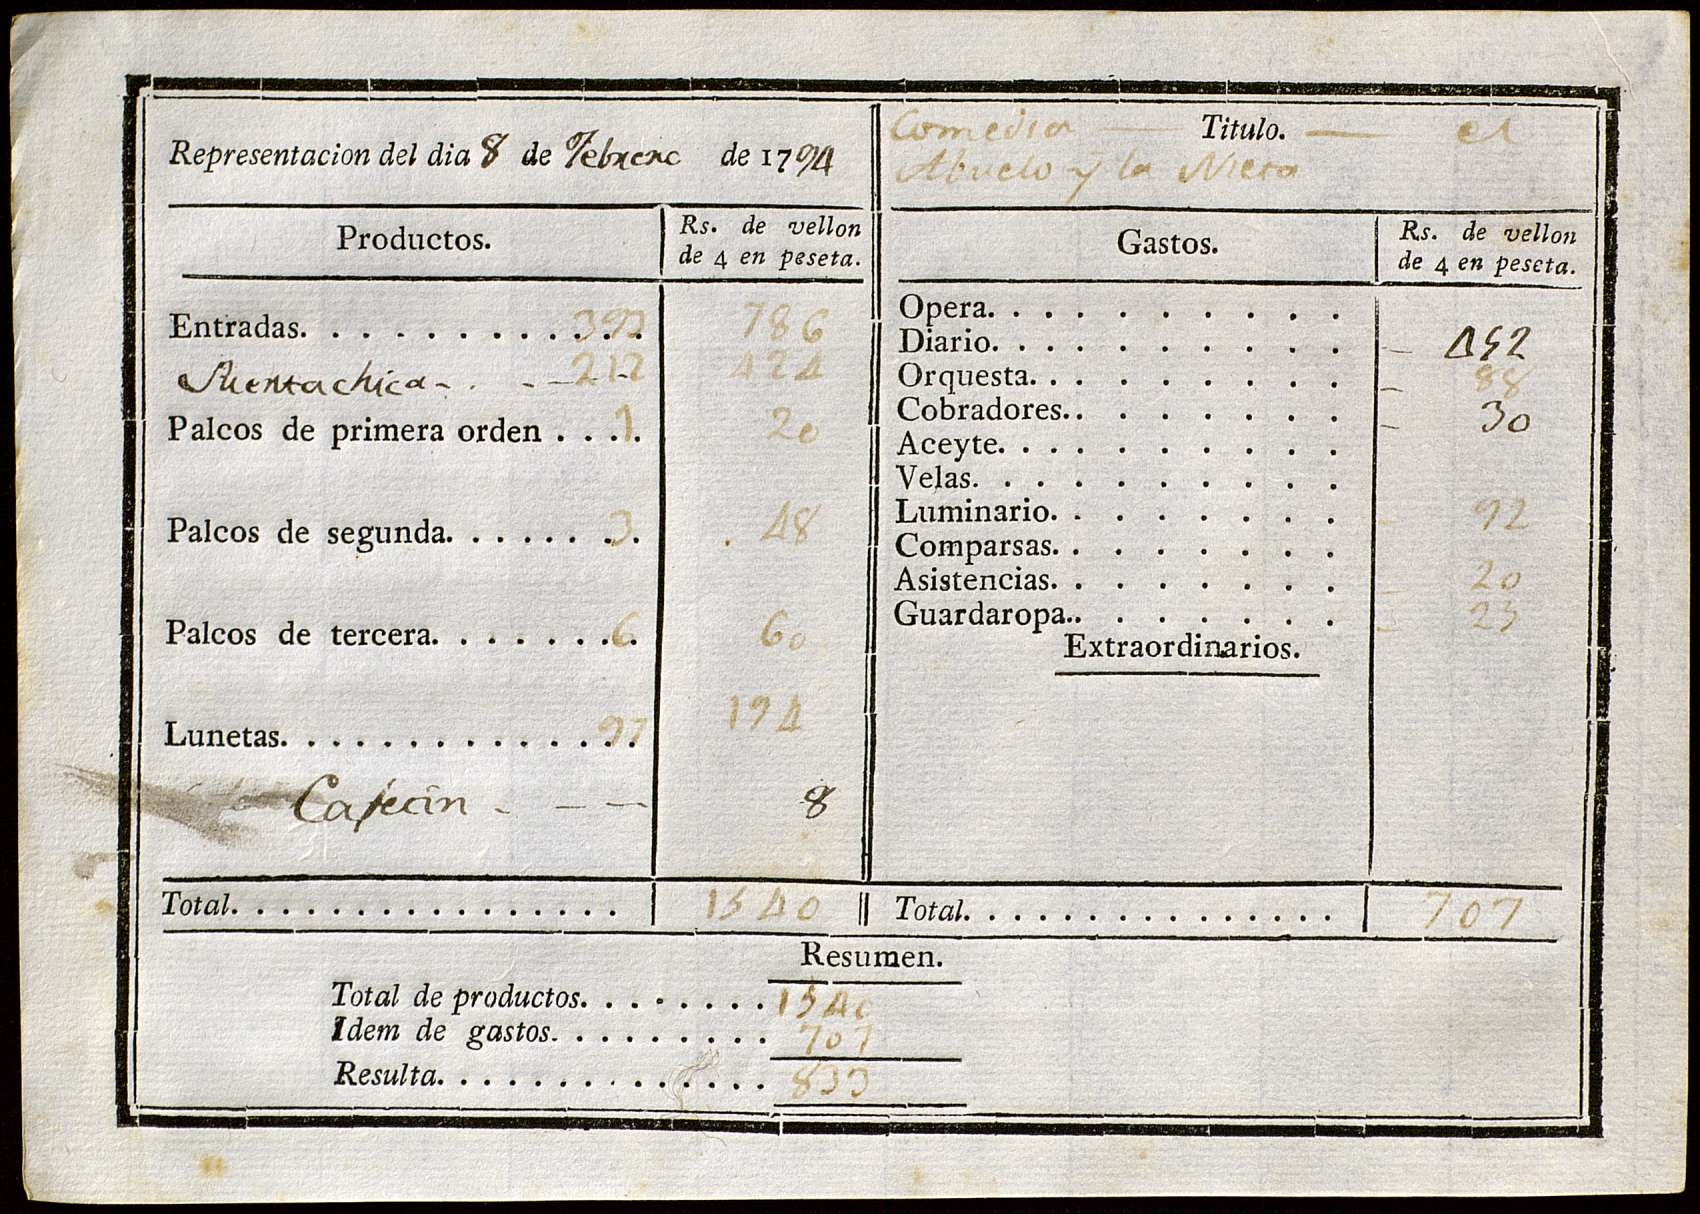 Representacion del dia 8 de Febrero de 1794
Productos. Rs. de vellon
de 4 en peseta.
Entradas. . . . . . . . . . . . 393 786
Puertachica - . - - - - 212 424
Palcos de primera orden . . . 1. 20
Palcos de segunda. . . . . . . 3. 48
Palcos de tercera. . . . . . . 6. 60
Lunetas. . . . . . . . . . . . . 97 194
Cajecin - - - - 8
Total. . . . . . . . . . . . . . . . 1540
Comedia — Titulo. — el
Abuelo y la Nieta
Gastos. Rs. de vellon
de 4 en peseta.
Opera. . . . . . . . . .
Diario. . . . . . . . . . 452
Orquesta. . . . . . . . . 88
Cobradores. . . . . . . . 30
Aceyte. . . . . . . . . .
Velas. . . . . . . . . .
Luminario. . . . . . . . 92
Comparsas. . . . . . . .
Asistencias. . . . . . . . 20
Guardaropa. . . . . . . . 25
Extraordinarios.
Total. . . . . . . . . . . . . . . 707
Resumen.
Total de productos. . . . . . . . 1540
Idem de gastos. . . . . . . . . 707
Resulta. . . . . . . . . . . . . . 833